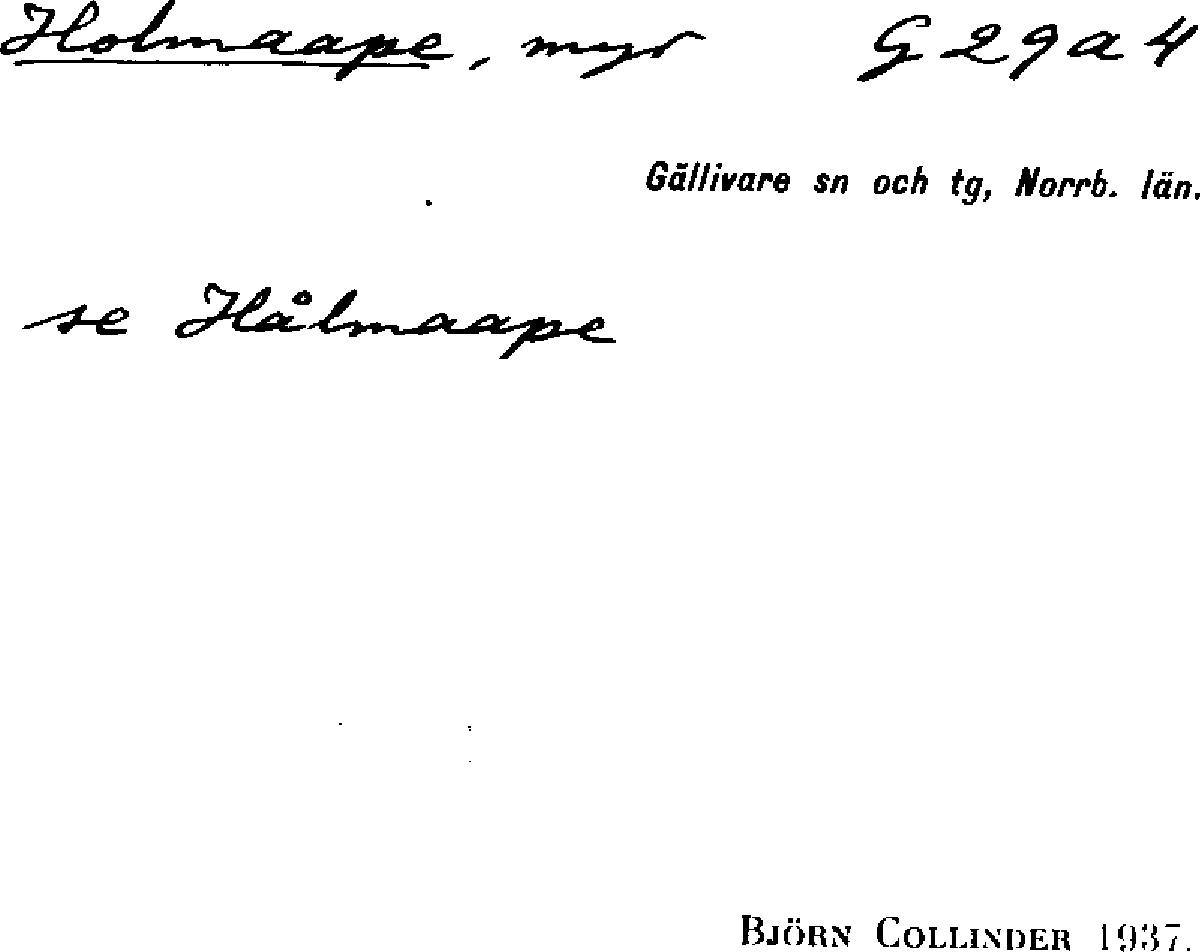 Holmaape, myr G 29 a 4
Gällivare sn och tg, Norrb. län.
se Hålmaape
BJÖRN COLLINDER 1937.